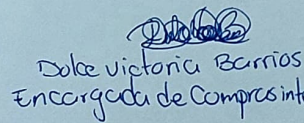 Dulce victoria Barrios
Encargada de Compras